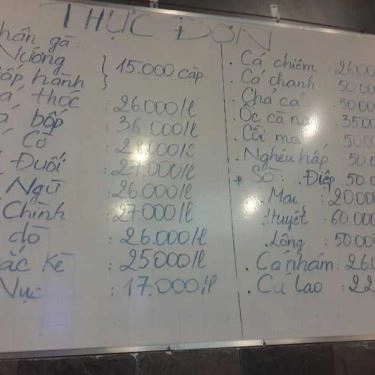 THỰC ĐƠN
hân gà:
Nướng
ấp hành } 15.000 cặp
thọc : 26.000/l
bốp : 36.000/l
Cờ : 28.000/l
Đuối : 27.000/l
Ngừ : 26.000/l
Chình : 27.000/l
dò : 26.000/l
ắc Kè : 25000/l
Nục : 17.000/l
. Cá chiêm : 26.00
. Cá chanh 50.00
. Chả cá . 50.00
. Ốc cà na : 3500
. Cồi mai : 50.00
. Nghêu hấp : 50.00
* Sò : Điệp . 50.0
. Mai : 20.00
. Huyết : 60.000
. Lông : 50.00
. Cá nhám : 26.0
. Cù lao : 22